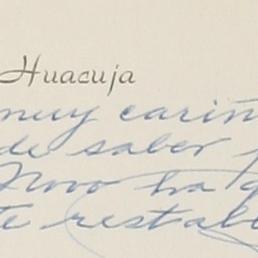 Huacuja
muy cariñ
de saber
Novo ha
te restabl